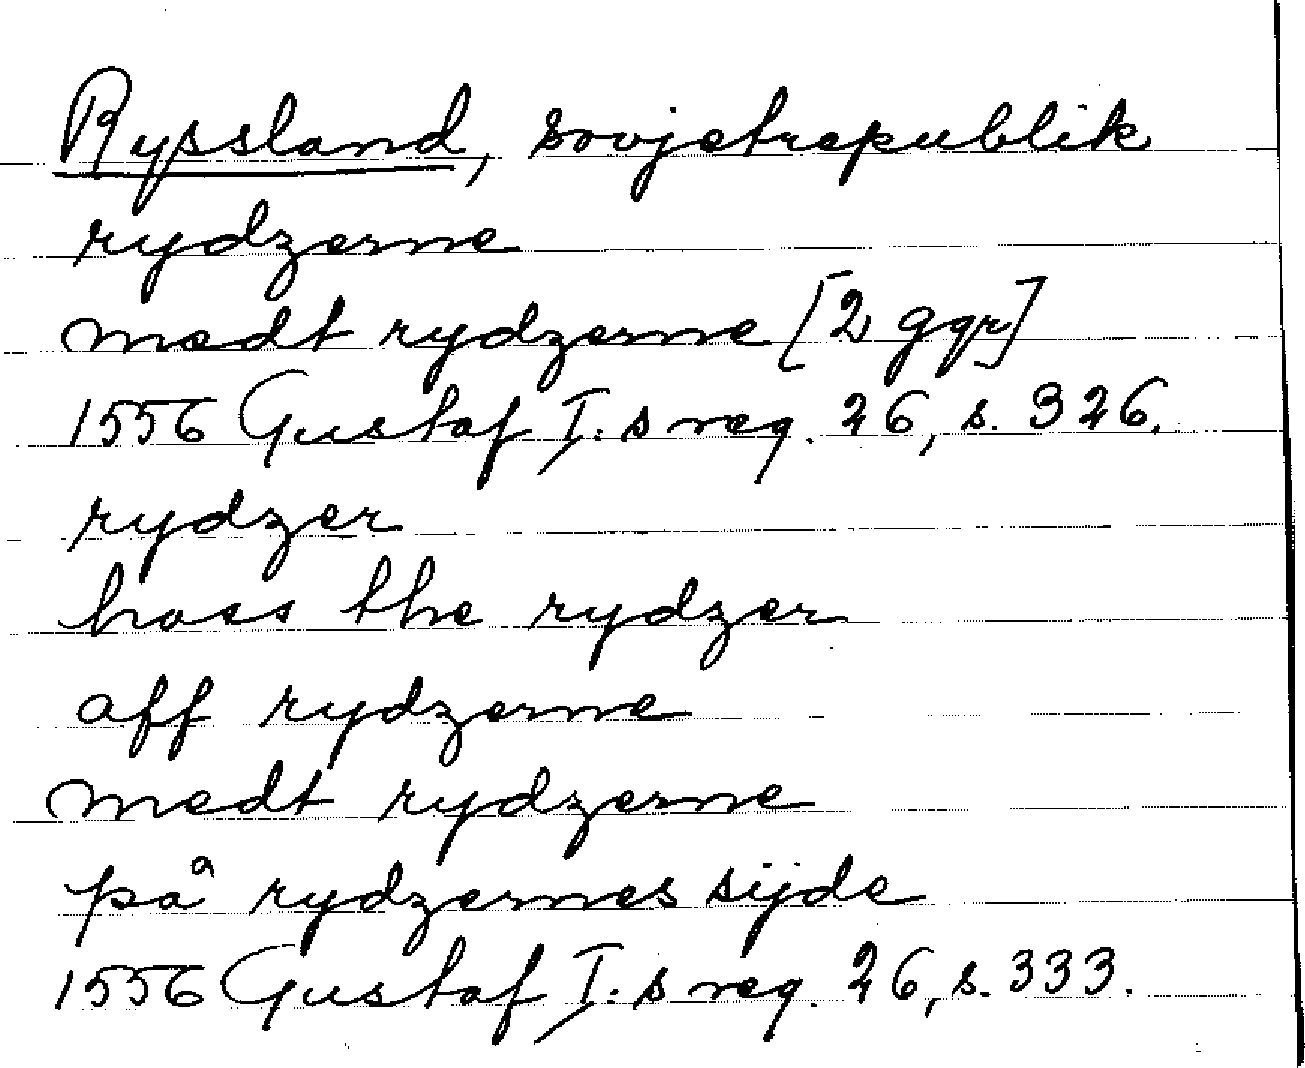 Ryssland, sovjetrepublik
rydzerne
medt rydzerne [2 ggr]
1556 Gustaf I:s reg. 26, s. 326.
rydzer
hoss the rydzer
aff rydzerne
medt rydzerne
på rydzernes sijde
1556 Gustaf I:s reg. 26, s. 333.